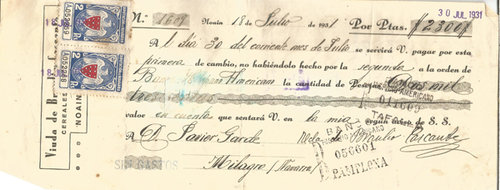 30 JUL. 1931
N.º 1609 Noain 18 de Julio de 1931 Por Ptas. #2300#
Al día 30 del corriente mes de Julio se servirá V. pagar por esta
primera de cambio, no habiéndolo hecho por la segunda a la orden de
Banco Hispano Americano la cantidad de Pesetas Dos mil
trescientas
valor en cuenta que sentará V. en la mía según aviso de S. S.
A D. Javier Garde
Milagro (Navarra)
SIN GASTOS
056601
PAMPLONA
Viuda de
CEREALES
NOAIN
2 PTAS
2 PTAS